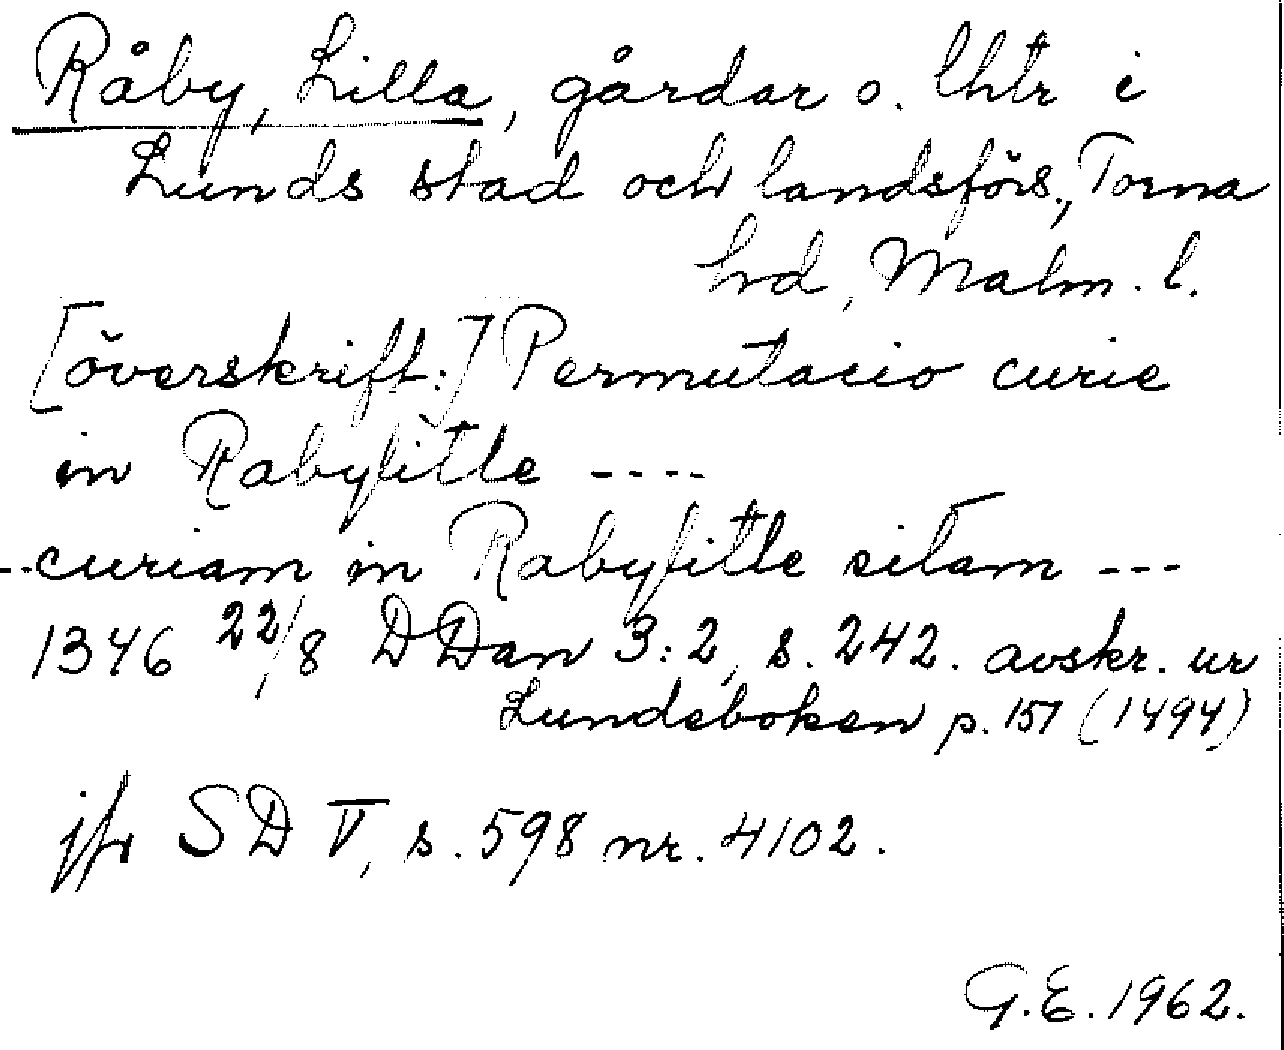 Råby, Lilla, gårdar o. lhtr i
Lunds stad och landsförs., Torna
hd, Malm. l.
[överskrift:] Permutacio curie
in Rabylitle ----
--curiam in Rabylitle sitam ---
1346 22/8 DDan 3:2, s. 242. avskr. ur
Lundeboken p. 157 (1494)
jfr SD V, s. 598 nr. 4102.
G.E. 1962.